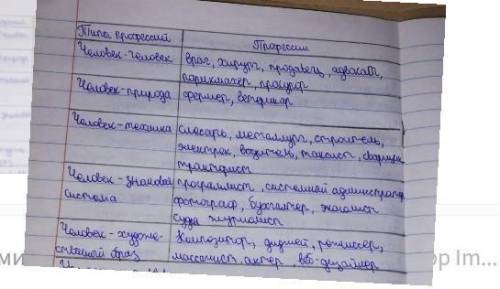 Типы профессий Профессии
Человек-человек врач, хирург, продавец, адвокат,
парикмахер, прокурор
Человек-природа фермер, ветеринар
Человек-техника слесарь, металлург, строитель,
электрик, водитель, таксист, сварщик
тракторист
Человек-знаковая программист, системный администратор
система фотограф, бухгалтер, экономист
судья журналист
Человек-художе- Композитор, дизайнер, режиссер,
ственный образ массажист, актер, веб-дизайнер
ор Im...